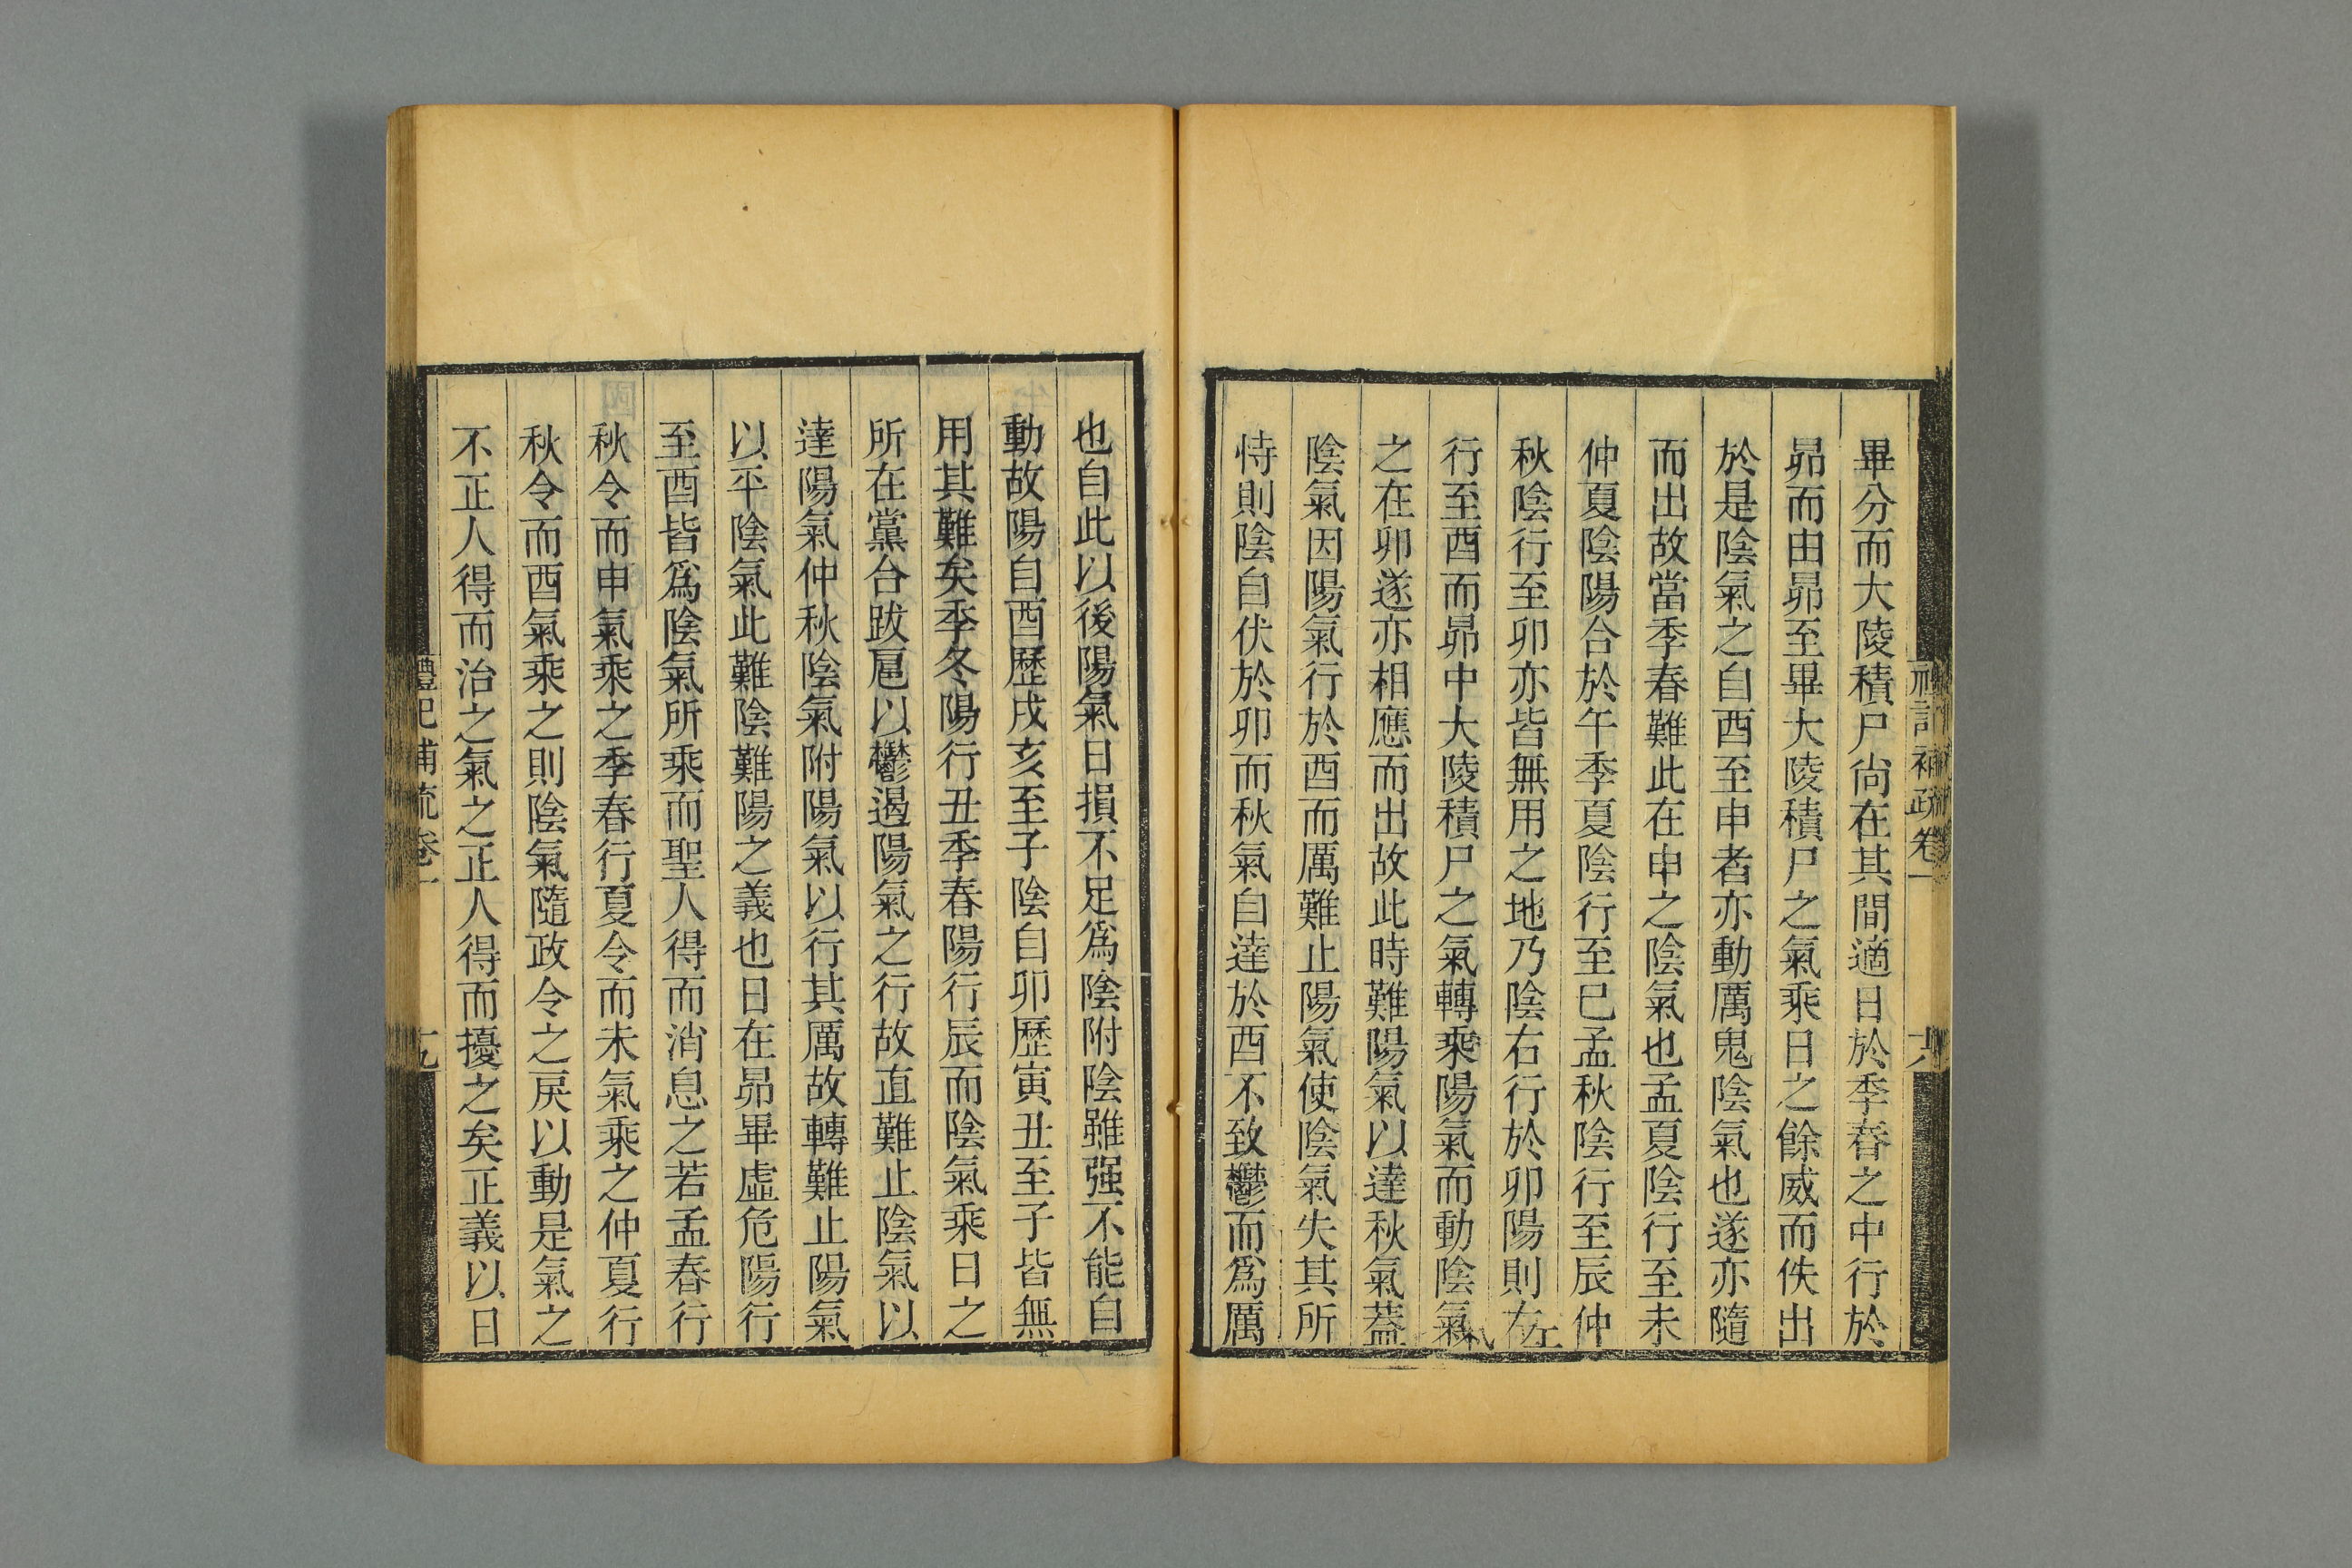 禮記補疏卷一
十八
畢分而大陵積尸尙在其間適日於季春之中行於
昴而由昴至畢大陵積尸之氣乘日之餘威而佚出
於是陰氣之自酉至申者亦動厲鬼陰氣也遂亦隨
而出故當季春難此在申之陰氣也孟夏陰行至未
仲夏陰陽合於午季夏陰行至巳孟秋陰行至辰仲
秋陰行至卯亦皆無用之地乃陰右行於卯陽則左
行至酉而昴中大陵積尸之氣轉乘陽氣而動陰氣
之在卯遂亦相應而出故此時難陽氣以達秋氣蓋
陰氣因陽氣行於酉而厲難止陽氣使陰氣失其所
恃則陰自伏於卯而秋氣自達於酉不致鬱而爲厲
也自此以後陽氣日損不足爲陰附陰雖强不能自
動故陽自酉歷戌亥至子陰自卯歷寅丑至子皆無
用其難矣季冬陽行丑季春陽行辰而陰氣乘日之
所在黨台跋扈以鬱遏陽氣之行故直難止陰氣以
達陽氣仲秋陰氣附陽氣以行其厲故轉難止陽氣
以平陰氣此難陰難陽之義也日在昴畢虛危陽行
至酉皆爲陰氣所乘而聖人得而消息之若孟春行
秋令而申氣乘之季春行夏令而未氣乘之仲夏行
秋令而酉氣乘之則陰氣隨政令之戾以動是氣之
不正人得而治之氣之正人得而擾之矣正義以日
禮記補疏卷一
十九